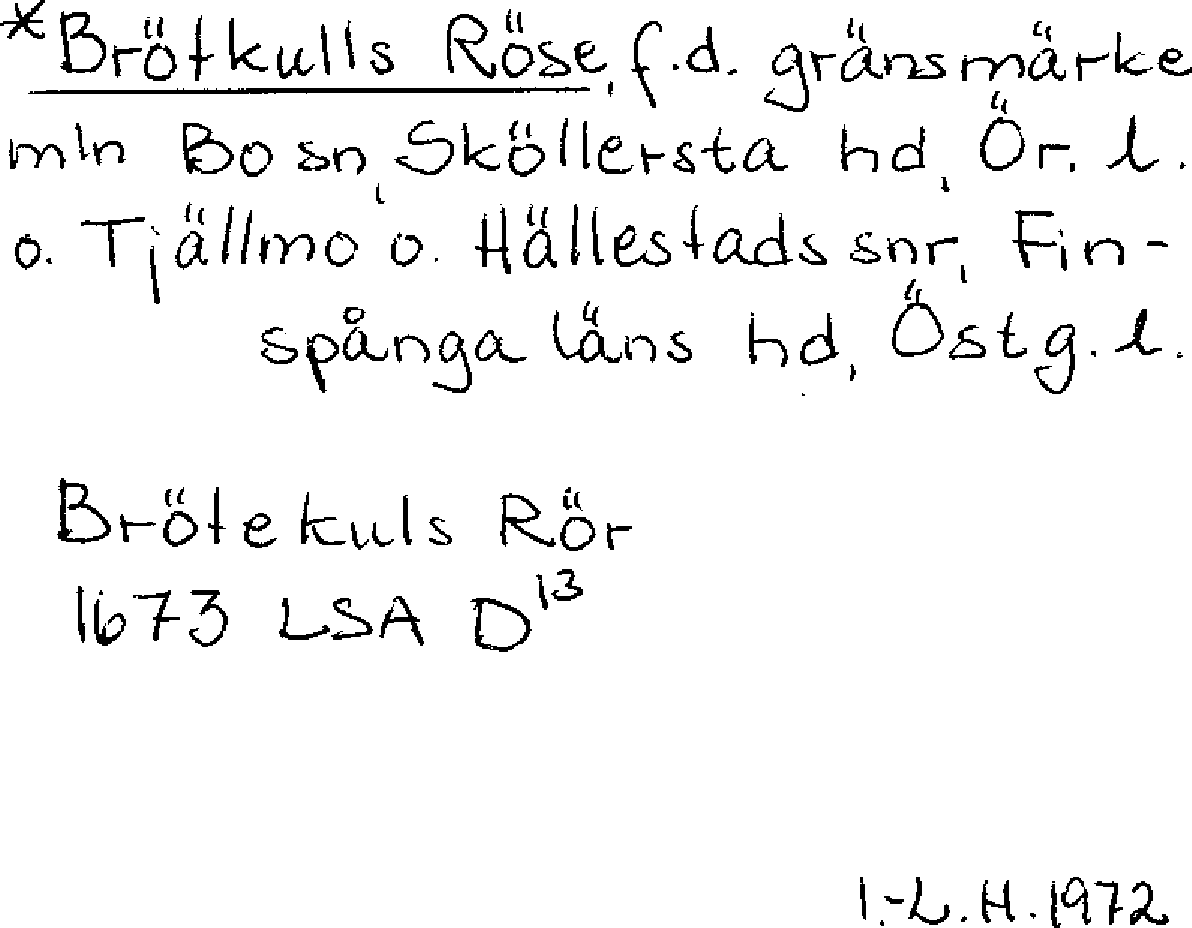 *Brötkulls Röse, f.d. gränsmärke
mln Bo sn, Sköllersta hd, Ör. l.
o. Tjällmo o. Hällestads snr, Fin-
spånga läns hd, Östg. l.
Brötekuls Rör
1673 LSA D13
I.-L. H. 1972